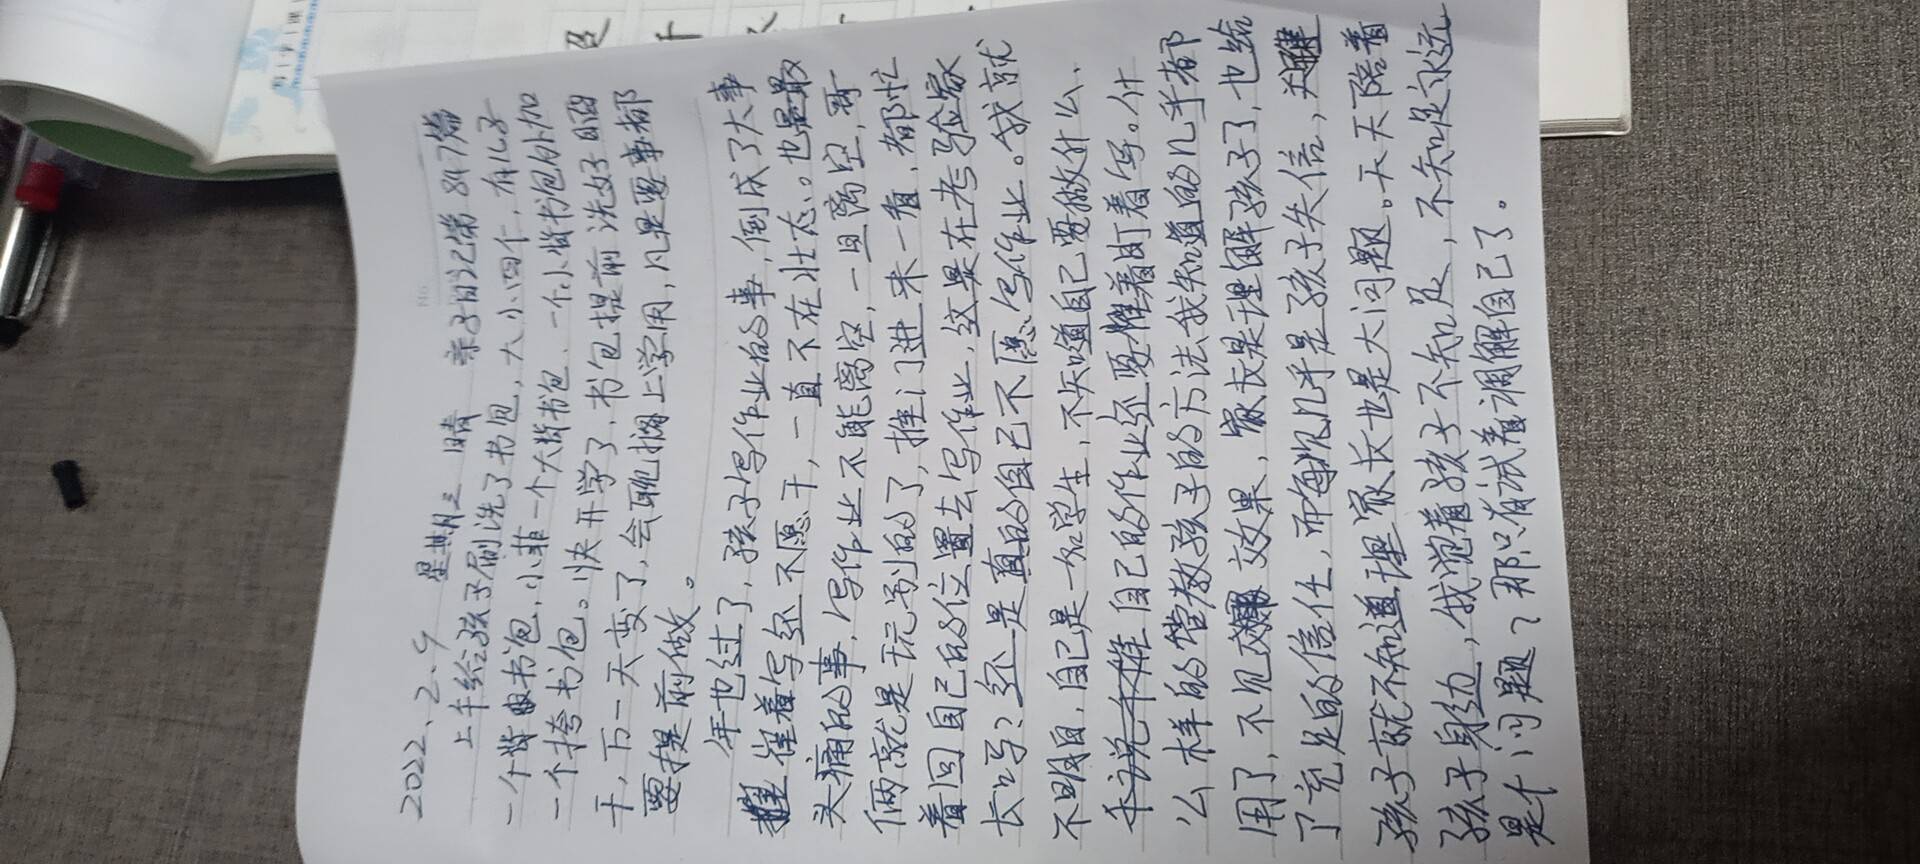 2022.2.9 星期三 晴 亲子日记第847篇
上午给孩子刷洗了书包,大小四个,有儿子
一个背书包,小菲一个大背书包、一个小背书包外加
一个挎书包。快开学了,书包提前洗好晒
干,万一天变了,会耽搁上学用,凡是要事都
要提前做。
年也过了,孩子写作业的事,倒成了大事
催着写还不愿干,一直不在状态。也是最
头痛的事,写作业不能离空,一旦离空,哥
俩就是玩别的了,推门进来一看,都忙
着回自己的位置去写作业,这是在考验家
长吗?还是真的自己不愿写作业。我就
不明白,自己是一名学生,不知道自己要做什么、
自己的作业还要催着盯着写。什
么样的管教孩子的方法我知道的几乎都
用了,不见效果,家长是理解孩子了,也给
了充足的信任,而每次几乎是孩子失信,
孩子就不知道理家长也是大问题。天天陪着
孩子身边,我觉着孩子不知足,不知足永远
是个问题?那只有试着调解自己了。